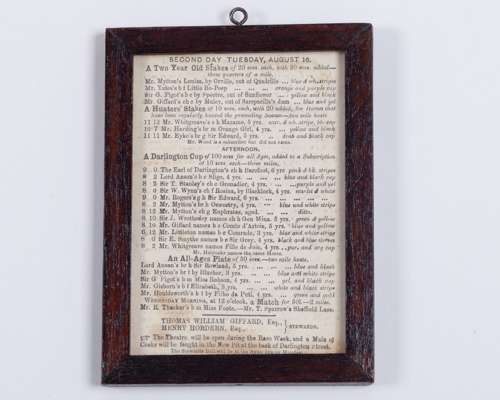 SECOND DAY TUESDAY, AUGUST 16.
A Two Year Old Stakes of 20 sovs. each, with 20 sovs. added—
three quarters of a mile.
Mr. Mytton's Louisa, by Orville, out of Quadrille ... blue & wh. stripe
Mr. Yates's b f Little Bo-Peep ... orange and purple cap
Sir G. Pigot's b c by Spectre, out of Sunflower ... yellow and black
Mr. Giffard's ch c by Muley, out of Sarsparilla's dam ... blue and yel
A Hunters' Stakes of 10 sovs. each, with 20 added, for horses that
have been regularly hunted the preceding season—two mile heats
11 12 Mr. Whitgreave's ch h Mazame, 5 yrs.
10 7 Mr. Harding's br m Orange Girl, 4 yrs. ... yellow and black
11 11 Mr. Eyke's br g Sir Edward, 5 yrs. ... drab and black cap
Mr. Wood is a subscriber but did not name.
AFTERNOON.
A Darlington Cup of 100 sovs for all Ages, added to a Subscription
of 10 sovs. each—three miles.
9 0 The Earl of Darlington's ch h Barefoot, 6 yrs pink & bl. stripes
8 2 Lord Anson's b c Sligo, 4 yrs. ... blue and black cap
8 2 Sir T. Stanley's ch c Grenadier, 4 yrs. ... purple and yel
8 0 Sir W. Wynn's ch f Rosina, by Blacklock, 4 yrs.
9 0 Mr. Rogers's g h Sir Edward, 6 yrs.
8 2 Mr. Mytton's br c Oswestry, 4 yrs ... blue and white stripe
8 12 Mr. Mytton's ch g Euphrates, aged. ... ditto.
8 10 Sir J. Wrottesley names ch h Gen Mina. 5 yrs. green & yellow
8 10 Mr. Giffard names b c Comte d'Artois, 5 yrs. blue and yellow
6 12 Mr. Littleton names b c Courande, 3 yrs. blue and white stripe
8 0 Sir E. Smythe names b c Sir Gray, 4 yrs. black and blue sleeves
8 2 Mr. Whitgreave names Fille de Joie, 4 yrs.
An All-Ages Plate of 50 sovs.—two mile heats.
Lord Anson's br h Sir Rowland, 5 yrs. ... blue and black
Mr. Mytton's br f by Blucher, 3 yrs. ... blue and white stripe
Sir G Pigot's b m Miss Robson, 4 yrs. ... yel. and black cap
Mr. Gisborn's b f Elizabeth, 3 yrs. ... wh and black stripe
Mr. Houldsworth's b f by Filho da Puti, 4 yrs. ... green and gold
WEDNESDAY MORNING, at 12 o'clock, a Match for 50l.—2 miles.
Mr. R. Thacker's b m Miss Foote.—Mr. T. Sparrow's Sheffield Lass.
THOMAS WILLIAM GIFFARD, Esq.,
HENRY HORDERN, Esq., STEWARDS.
The Theatre, will be open during the Race Week, and a Main of
Cocks will be fought in the New Pit at the back of Darlington street.